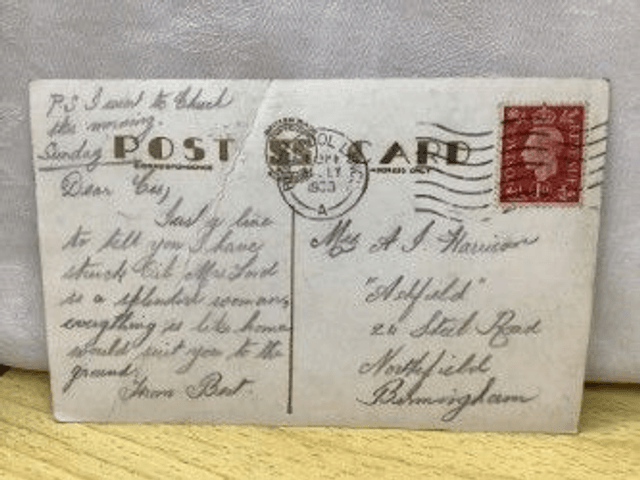 P.S I went to Church
this morning.
Sunday
POST CARD
CORRESPONDENCE
ADDRESS ONLY
Dear Cis,
Just a line
to tell you I have
struck Oil Mrs
is a splendid woman,
everything is like home
would suit you to the
ground.
From Bert.
A
POSTAGE
REVENUE
1D
Mrs A J Harrison
"Ashfield"
26 Steel Road
Northfield
Birmingham